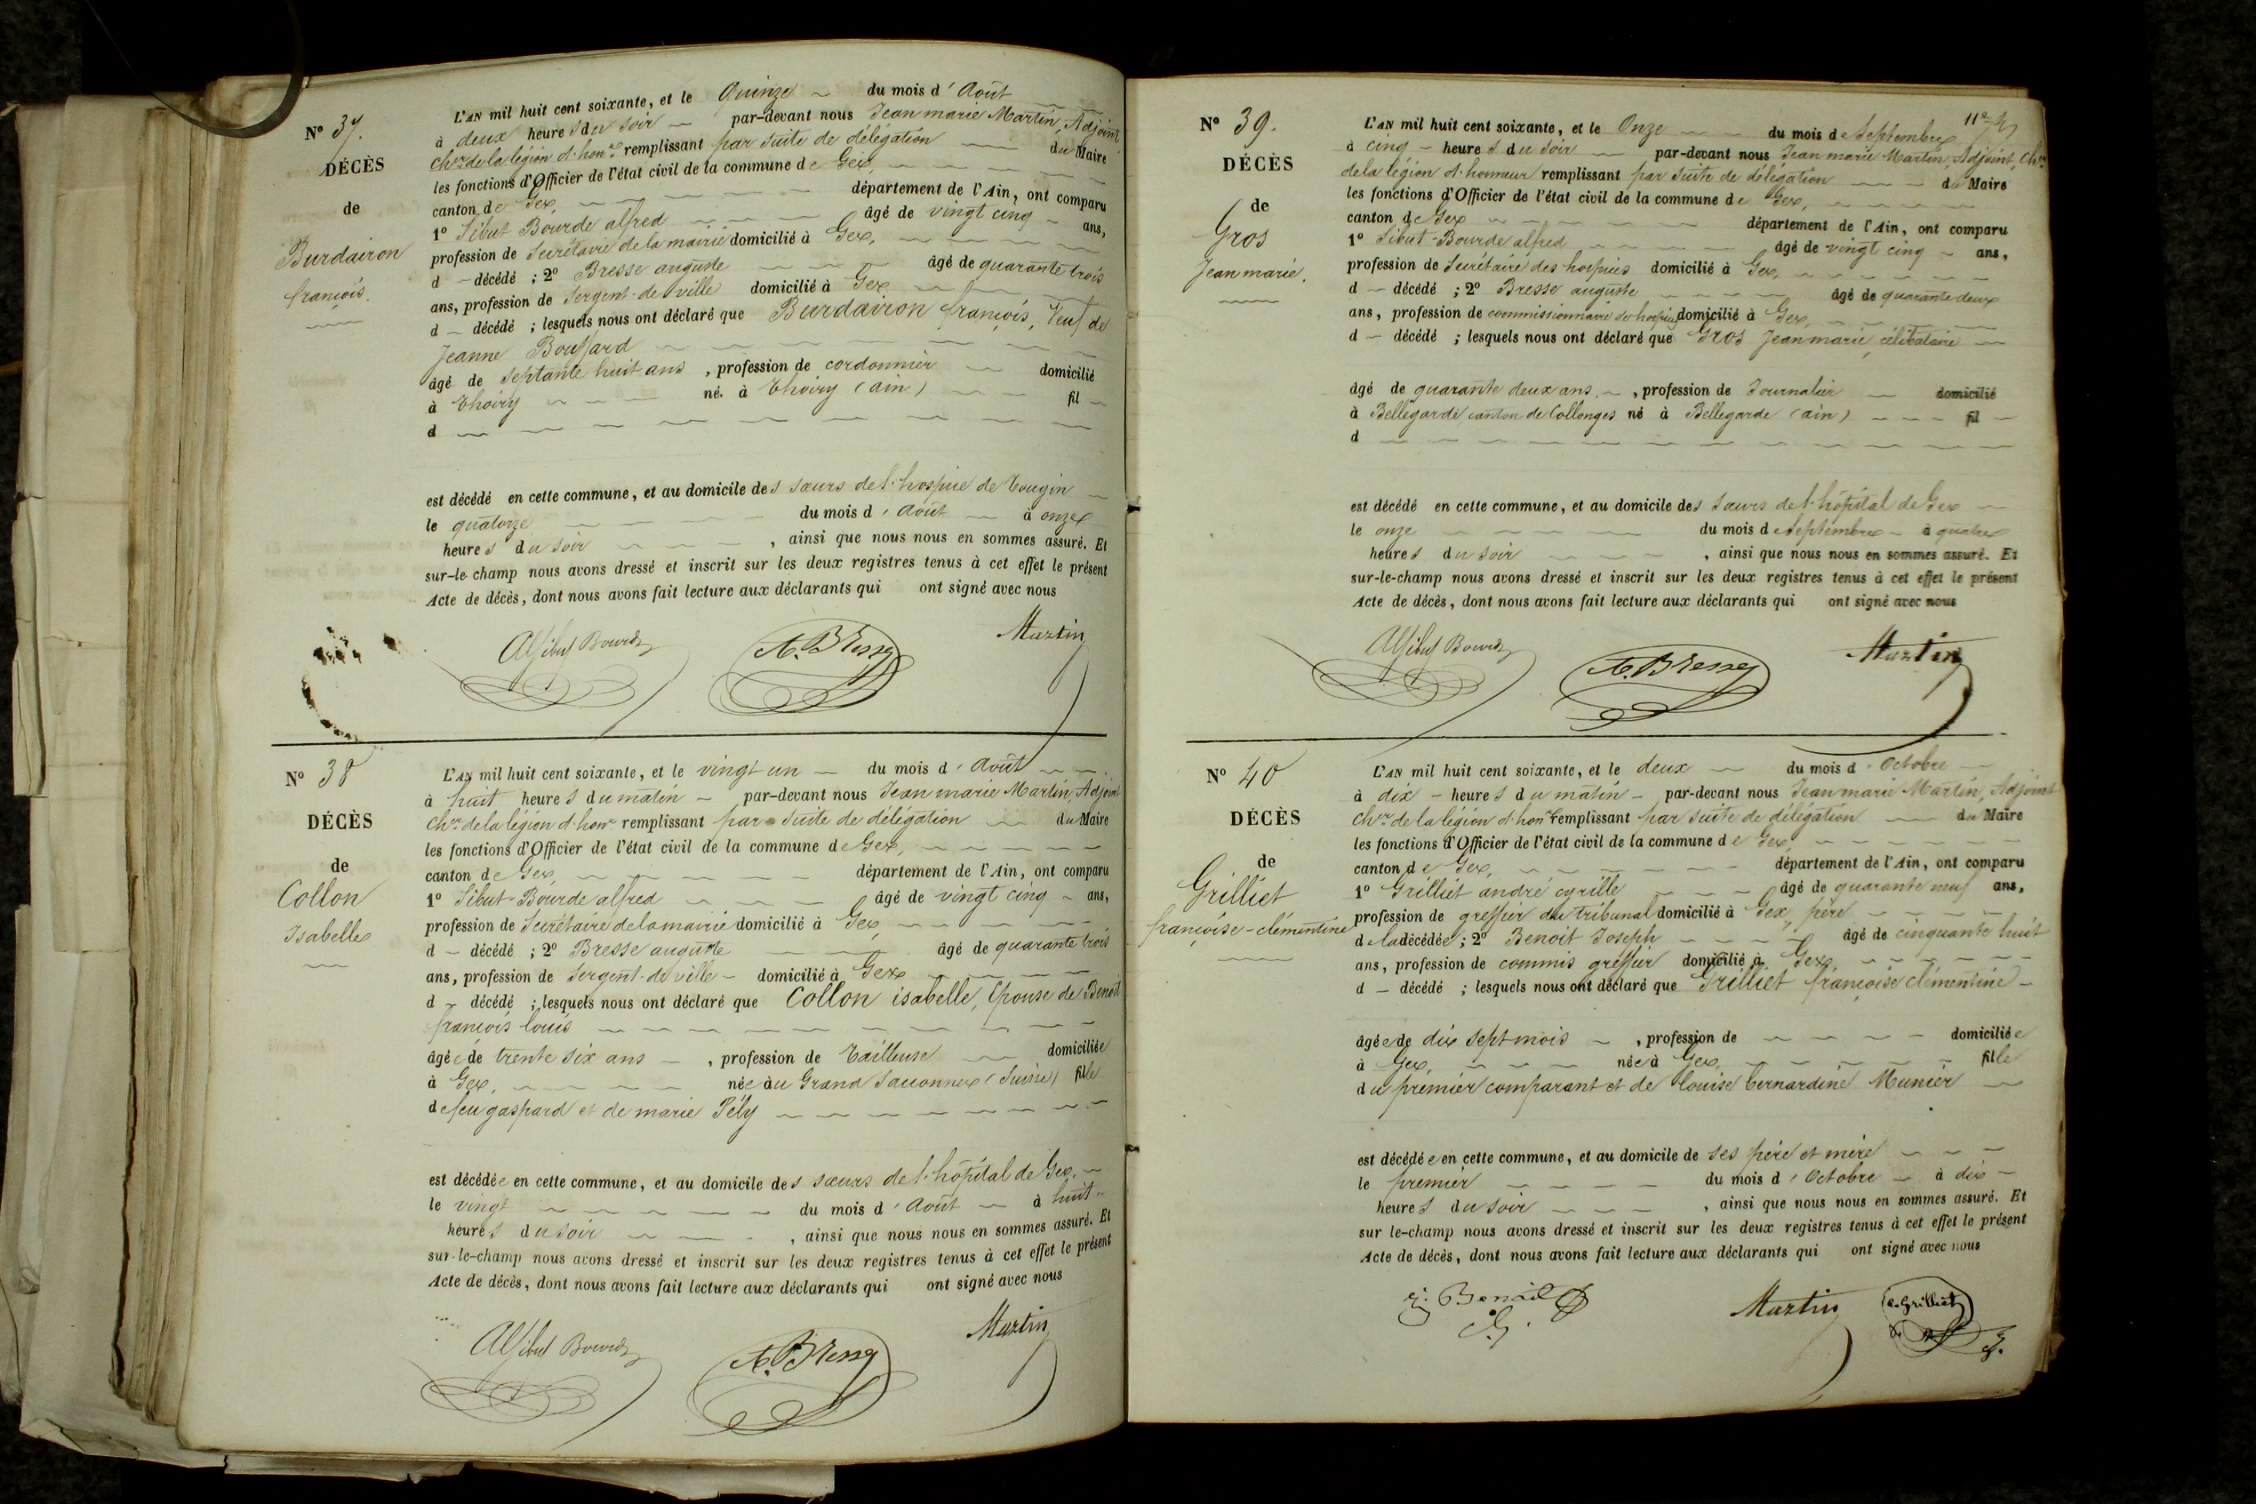 N° 37.
DÉCÈS
de
Burdairon
françois.
L'AN mil huit cent soixante, et le Quinze du mois d'Août
à deux heures du soir par-devant nous Jean marie Martin, Adjoint
cher de la légion d'honr remplissant par suite de délégation du Maire
les fonctions d'Officier de l'état civil de la commune de Gex,
canton de Gex, département de l'Ain, ont comparu
1° Sibut Bourde alfred âgé de vingt cinq ans,
profession de Secrétaire de la mairie domicilié à Gex,
d décédé ; 2° Bresse auguste âgé de quarante trois
ans, profession de Sergent de ville domicilié à Gex
d décédé ; lesquels nous ont déclaré que Burdairon françois, Veuf de
Jeanne Bouffard
âgé de septante huit ans , profession de cordonnier domicilié
à Thoiry né à Thoiry (ain) fil
d
est décédé en cette commune, et au domicile des sœurs de l'hospice de Tougin
le quatorze du mois d'Août à onze
heures du soir , ainsi que nous nous en sommes assuré. Et
sur-le-champ nous avons dressé et inscrit sur les deux registres tenus à cet effet le présent
Acte de décès, dont nous avons fait lecture aux déclarants qui ont signé avec nous
A Sibut Bourde A. Bresse Martin
N° 38
DÉCÈS
de
Collon
Isabelle
L'AN mil huit cent soixante, et le vingt un du mois d'Août
à huit heures du matin par-devant nous Jean marie Martin, Adjoint
cher de la légion d'honr remplissant par suite de délégation du Maire
les fonctions d'Officier de l'état civil de la commune de Gex,
canton de Gex, département de l'Ain, ont comparu
1° Sibut-Bourde alfred âgé de vingt cinq ans,
profession de Secrétaire de la mairie domicilié à Gex,
d décédé ; 2° Bresse auguste âgé de quarante trois
ans, profession de Sergent de ville domicilié à Gex
d décédé ; lesquels nous ont déclaré que Collon isabelle, Epouse de Benoit
françois louis
âgée de trente six ans , profession de Tailleuse domiciliée
à Gex, née au Grand Saconnex (Suisse) fille
de feu gaspard et de marie Pély
est décédée en cette commune, et au domicile des sœurs de l'hôpital de Gex.
le vingt du mois d'Août à huit
heures du soir , ainsi que nous nous en sommes assuré. Et
sur-le-champ nous avons dressé et inscrit sur les deux registres tenus à cet effet le présent
Acte de décès, dont nous avons fait lecture aux déclarants qui ont signé avec nous
A Sibut Bourde A. Bresse Martin
N° 39.
DÉCÈS
de
Gros
Jean marie.
L'AN mil huit cent soixante, et le Onze du mois de Septembre
à cinq heures du soir par-devant nous Jean marie Martin, Adjoint, Cher
de la légion d'honneur remplissant par suite de délégation du Maire
les fonctions d'Officier de l'état civil de la commune de Gex,
canton de Gex département de l'Ain, ont comparu
1° Sibut-Bourde alfred âgé de vingt cinq ans,
profession de Secrétaire des hospices domicilié à Gex,
d décédé ; 2° Bresse auguste âgé de quarante deux
ans, profession de commissionnaire des hospices domicilié à Gex,
d décédé ; lesquels nous ont déclaré que Gros Jean marie, célibataire
âgé de quarante deux ans , profession de Journalier domicilié
à Bellegarde, canton de Collonges né à Bellegarde (ain) fil
d
est décédé en cette commune, et au domicile des sœurs de l'hôpital de Gex
le onze du mois de Septembre à quatre
heures du soir , ainsi que nous nous en sommes assuré. Et
sur-le-champ nous avons dressé et inscrit sur les deux registres tenus à cet effet le présent
Acte de décès, dont nous avons fait lecture aux déclarants qui ont signé avec nous
A Sibut Bourde A. Bresse Martin
N° 40
DÉCÈS
de
Grilliet
françoise-clémentine
L'AN mil huit cent soixante, et le deux du mois d'Octobre
à dix heures du matin par-devant nous Jean marie Martin, Adjoint
cher de la légion d'honr remplissant par suite de délégation du Maire
les fonctions d'Officier de l'état civil de la commune de Gex,
canton de Gex, département de l'Ain, ont comparu
1° Grilliet andré cyrille âgé de quarante neuf ans,
profession de greffier du tribunal domicilié à Gex, père
de la décédée ; 2° Benoit Joseph âgé de cinquante huit
ans, profession de commis gréffier domicilié à Gex,
d décédé ; lesquels nous ont déclaré que Grilliet françoise clémentine
âgée de dix sept mois , profession de domiciliée
à Gex, née à Gex, fille
du premier comparant et de louise bernardine Munier
est décédée en cette commune, et au domicile de ses père et mère
le premier du mois d'Octobre à dix
heures du soir , ainsi que nous nous en sommes assuré. Et
sur le-champ nous avons dressé et inscrit sur les deux registres tenus à cet effet le présent
Acte de décès, dont nous avons fait lecture aux déclarants qui ont signé avec nous
j. Benoit Martin c. Grilliet